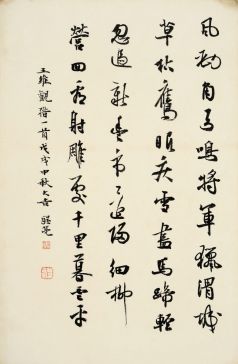 風勁角弓鳴將軍獵渭城
草枯鷹眼疾雪盡馬蹄輕
忽過新豐市還歸細柳
營回看射雕處千里暮雲平
王維觀獵一首戊戌中秋大吉